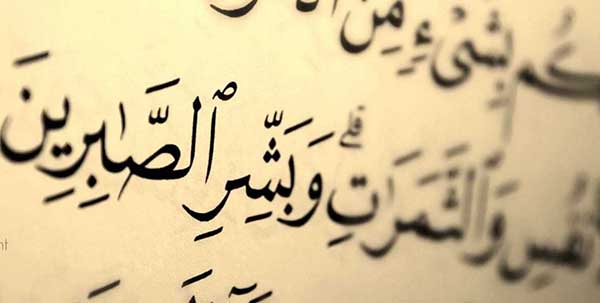 كُم بِشَىْءٍ مِّنَ
وَٱلثَّمَرَٰتِ ۗ وَبَشِّرِ ٱلصَّٰبِرِينَ